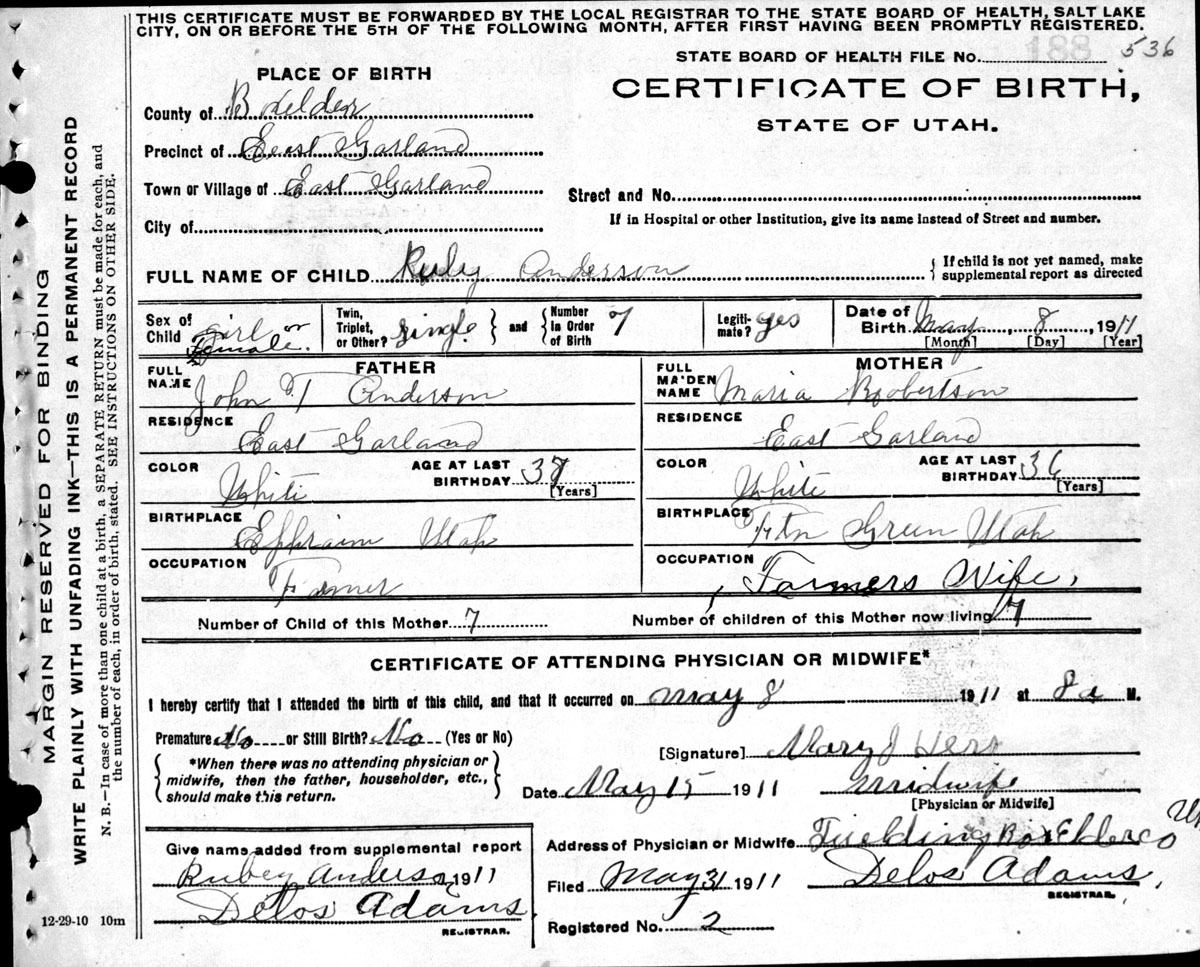 THIS CERTIFICATE MUST BE FORWARDED BY THE LOCAL REGISTRAR TO THE STATE BOARD OF HEALTH, SALT LAKE
CITY, ON OR BEFORE THE 5TH OF THE FOLLOWING MONTH, AFTER FIRST HAVING BEEN PROMPTLY REGISTERED.
STATE BOARD OF HEALTH FILE NO. 188 536
PLACE OF BIRTH
CERTIFICATE OF BIRTH,
STATE OF UTAH.
County of Boxelder
Precinct of East Garland
Town or Village of East Garland
Street and No.
City of
If in Hospital or other Institution, give its name instead of Street and number.
FULL NAME OF CHILD Ruby Anderson { If child is not yet named, make supplemental report as directed
Sex of Child girl or Female. Twin, Triplet, or Other? Single. } and { Number in Order of Birth 7 Legitimate? yes Date of Birth May, 8, 1911
[Month] [Day] [Year]
FATHER
MOTHER
FULL NAME John T Anderson
FULL MAIDEN NAME Maria Roobertson
RESIDENCE East Garland
RESIDENCE East Garland
COLOR White AGE AT LAST BIRTHDAY 38 [Years]
COLOR White AGE AT LAST BIRTHDAY 36 [Years]
BIRTHPLACE Ephraim Utah
BIRTHPLACE Ftn Green Utah
OCCUPATION Farmer
OCCUPATION Farmers Wife,
Number of Child of this Mother 7 Number of children of this Mother now living 7
CERTIFICATE OF ATTENDING PHYSICIAN OR MIDWIFE*
I hereby certify that I attended the birth of this child, and that it occurred on May 8 1911 at 8a M.
Premature No or Still Birth? No (Yes or No)
*When there was no attending physician or
midwife, then the father, householder, etc.,
should make this return.
[Signature] Mary J Herr
Date May 15 1911 Midwife
[Physician or Midwife]
Address of Physician or Midwife Fielding BoxElder co
Filed May 31 1911 Delos Adams,
REGISTRAR.
Registered No. 2
Give name added from supplemental report
Rubey Anderson 1911
Delos Adams,
REGISTRAR.
12-29-10 10m
MARGIN RESERVED FOR BINDING
WRITE PLAINLY WITH UNFADING INK—THIS IS A PERMANENT RECORD
N. B.—In case of more than one child at a birth, a SEPARATE RETURN must be made for each, and
the number of each, in order of birth, stated. SEE INSTRUCTIONS ON OTHER SIDE.